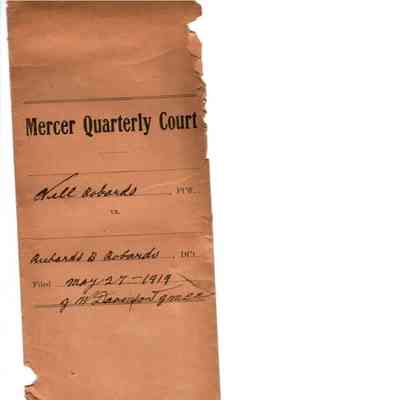 Mercer Quarterly Court
Nell Robards, Pl'ff.
vs.
Richards D Robards, Df't
Filed may 27-1919
J W Davenport